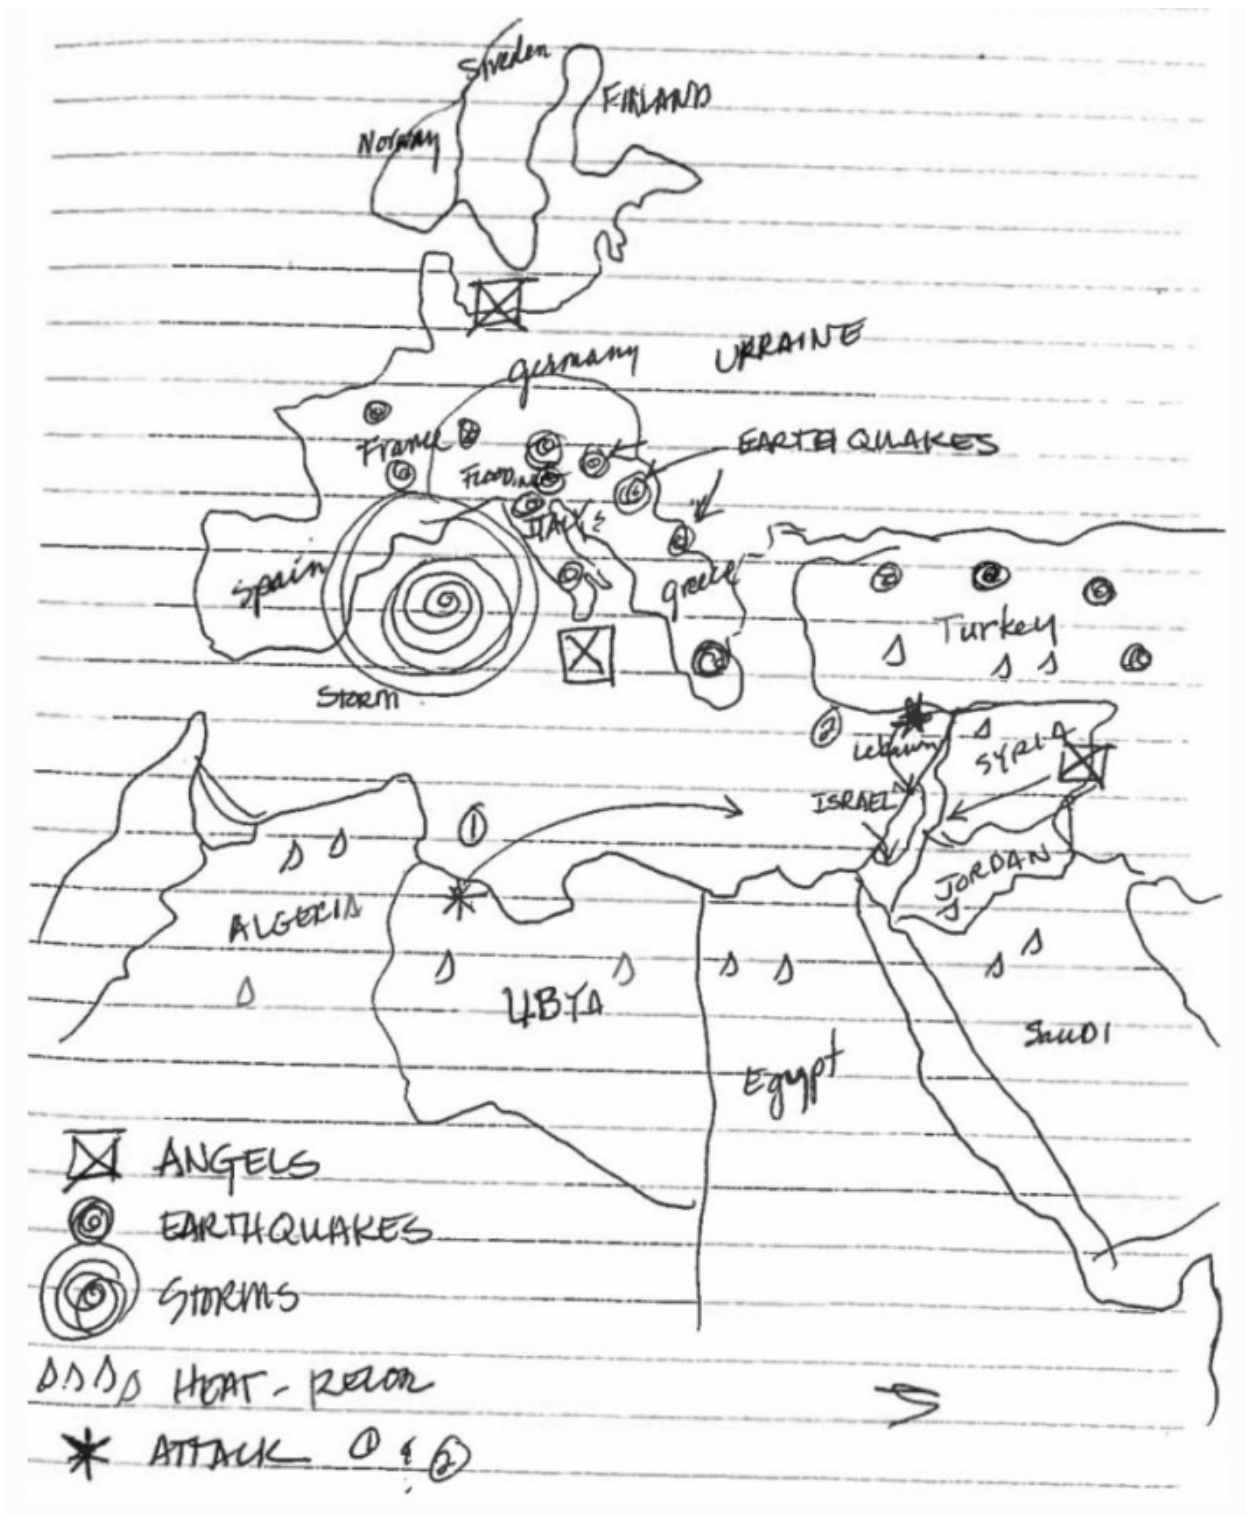 Sweden
FINLAND
Norway
Germany
UKRAINE
France
EARTHQUAKES
FLOODING
ITALY
Spain
Greece
Turkey
STORM
2
Lebanon
SYRIA
ISRAEL
1
JORDAN
ALGERIA
LIBYA
SAUDI
Egypt
ANGELS
EARTHQUAKES
STORMS
HEAT -
ATTACK 1 & 2